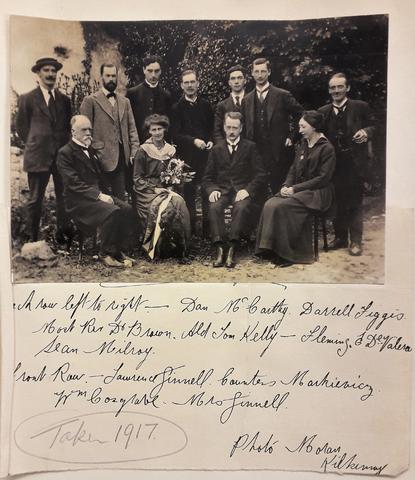 ack row left to right — Dan McCarthy, Darrell Figgis
Most Rev Dr Brown. Ald Tom Kelly — Fleming, E De Valera
Sean Milroy.
Front Row — Laurence Ginnell. Countess Markievicz.
Wm Cosgrave. Mrs Ginnell.
Taken 1917.
Photo Moran
Kilkenny